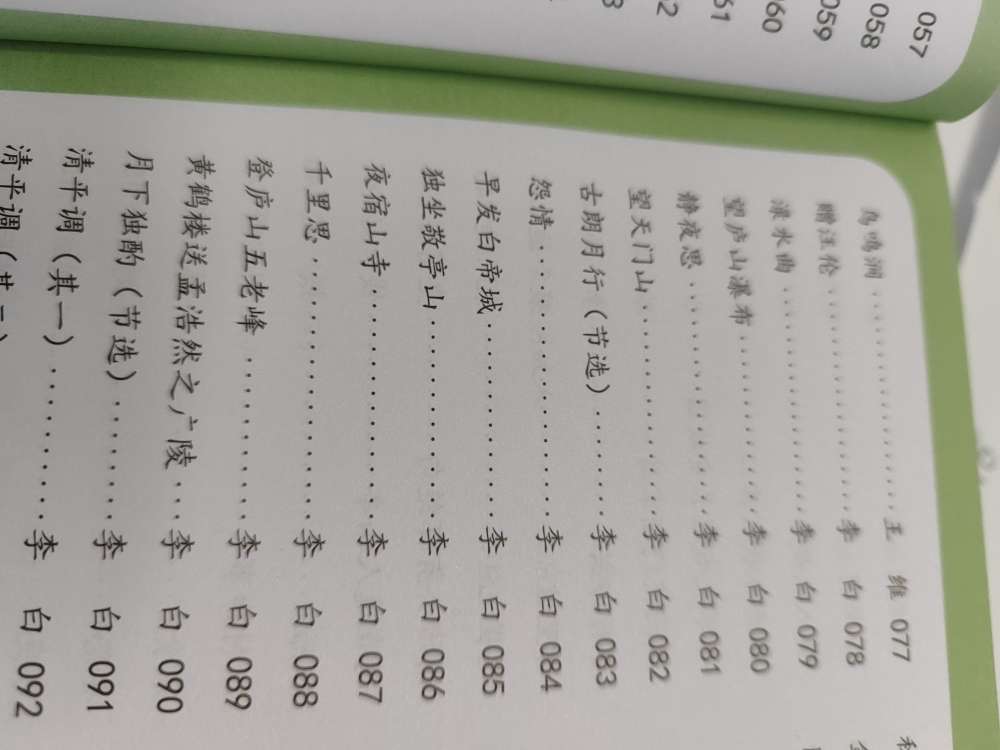 057
058
059
060
61
鸟鸣涧····················王 维 077
赠汪伦····················李 白 078
渌水曲····················李 白 079
望庐山瀑布················李 白 080
静夜思····················李 白 081
望天门山··················李 白 082
古朗月行（节选）·········李 白 083
怨情······················李 白 084
早发白帝城················李 白 085
独坐敬亭山················李 白 086
夜宿山寺··················李 白 087
千里思····················李 白 088
登庐山五老峰··············李 白 089
黄鹤楼送孟浩然之广陵···李 白 090
月下独酌（节选）·········李 白 091
清平调（其一）············李 白 092
清平调（其二）